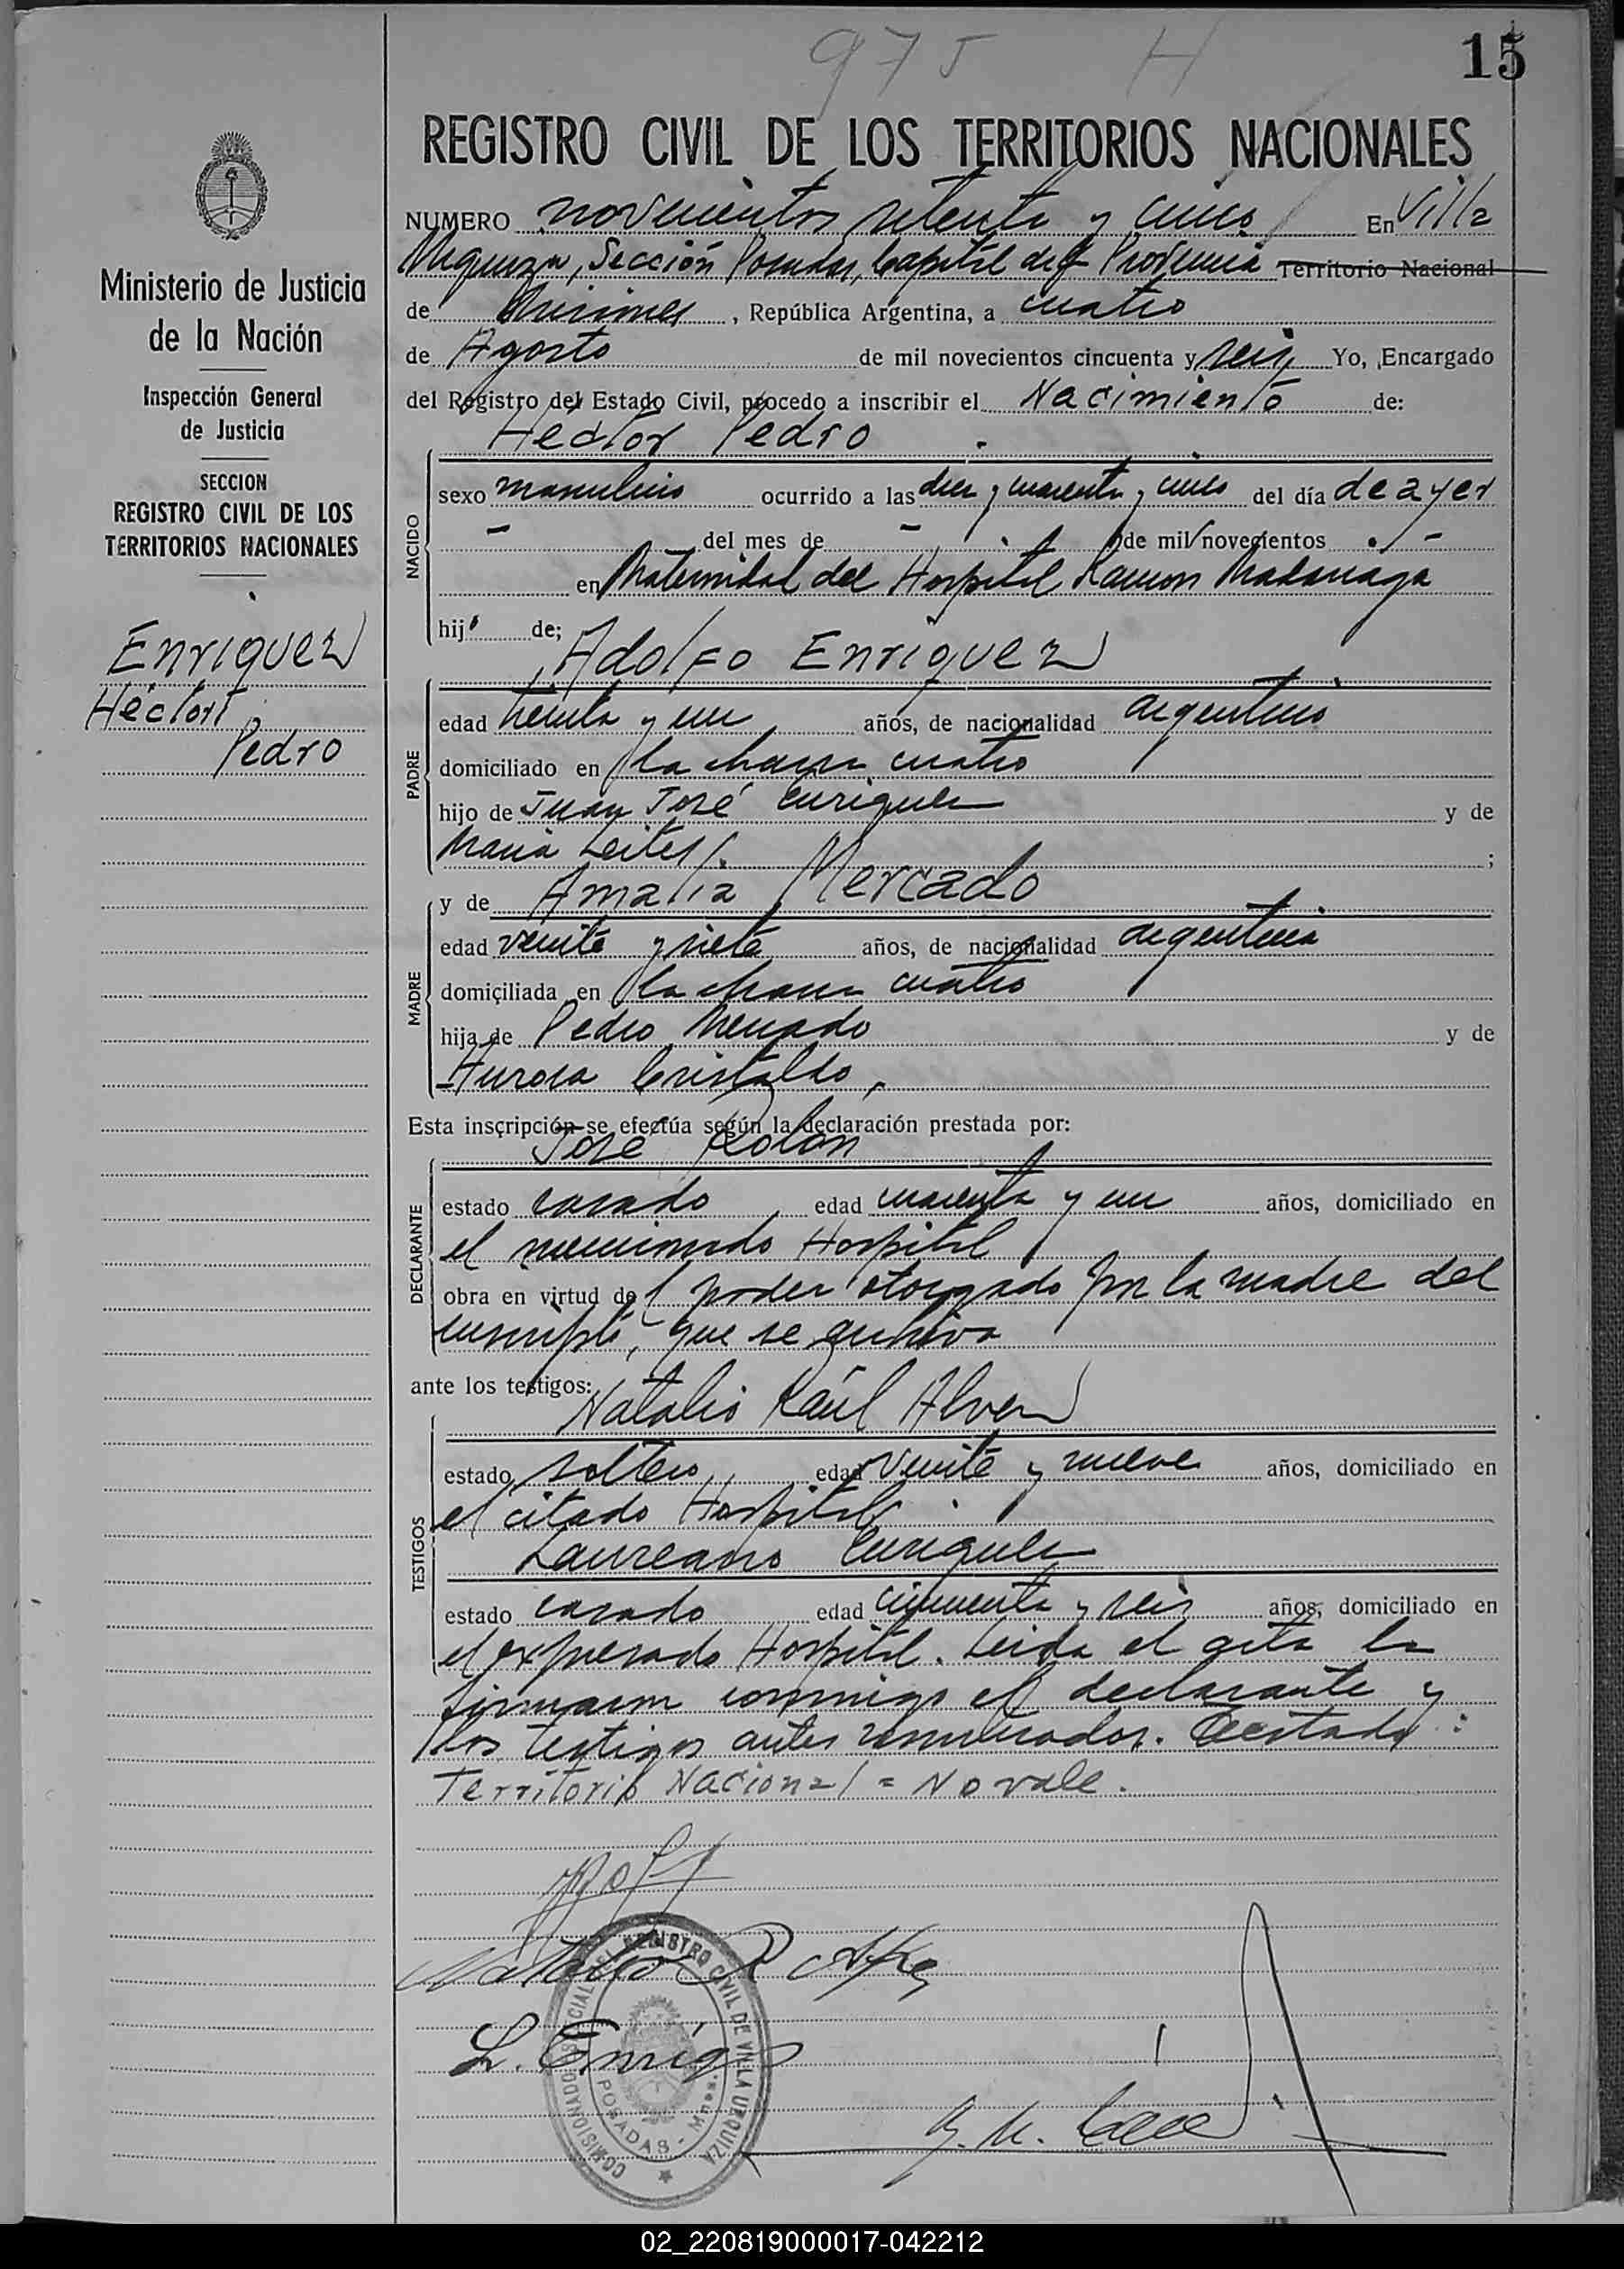 975 H
15
REGISTRO CIVIL DE LOS TERRITORIOS NACIONALES
NUMERO novecientos setenta y cinco En Villa
Urquiza, Sección Posadas, Capital de la Provincia Territorio Nacional
de Misiones, República Argentina, a cuatro
de Agosto de mil novecientos cincuenta y seis Yo, Encargado
del Registro del Estado Civil, procedo a inscribir el Nacimiento de:
Hector Pedro
NACIDO
sexo masculino ocurrido a las diez y cuarenta y cinco del día de ayer
- del mes de - de mil novecientos -
en Maternidad del Hospital Ramon Madariaga
hijo de;
Adolfo Enriquez
PADRE
edad treinta y un años, de nacionalidad argentino
domiciliado en la chacra cuatro
hijo de Juan José Enriquez y de
Maria Leites ;
y de Amalia Mercado
MADRE
edad veinte y siete años, de nacionalidad argentina
domiciliada en la chacra cuatro
hija de Pedro Mercado y de
Aurora Cristaldo,
Esta inscripción se efectúa según la declaración prestada por:
José Rolon
DECLARANTE
estado casado edad cuarenta y un años, domiciliado en
el mencionado Hospital
obra en virtud del poder otorgado por la madre del
inscripto, que se archiva
ante los testigos:
Natalio Raúl Alvez
TESTIGOS
estado soltero, edad veinte y nueve años, domiciliado en
el citado Hospital
Laureano Enriquez
estado casado edad cincuenta y seis años, domiciliado en
el expresado Hospital. Leida el acta la
firmaron conmigo el declarante y
los testigos antes nombrados. Testado:
Territorio Nacional = No vale.
Natalio R
L. Enriq
COMISIONADO ESPECIAL DEL REGISTRO CIVIL DE VILLA URQUIZA
POSADAS - Mnes.
Ministerio de Justicia
de la Nación
Inspección General
de Justicia
SECCION
REGISTRO CIVIL DE LOS
TERRITORIOS NACIONALES
Enriquez
Héctor
Pedro
02_220819000017-042212